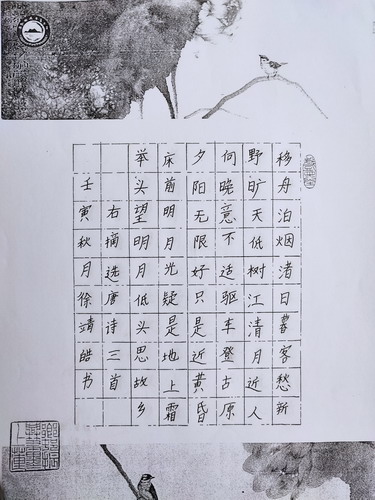 移舟泊烟渚日暮客愁新
野旷天低树江清月近人
向晚意不适驱车登古原
夕阳无限好只是近黄昏
床前明月光疑是地上霜
举头望明月低头思故乡
右摘选唐诗三首
壬寅秋月徐靖皓书